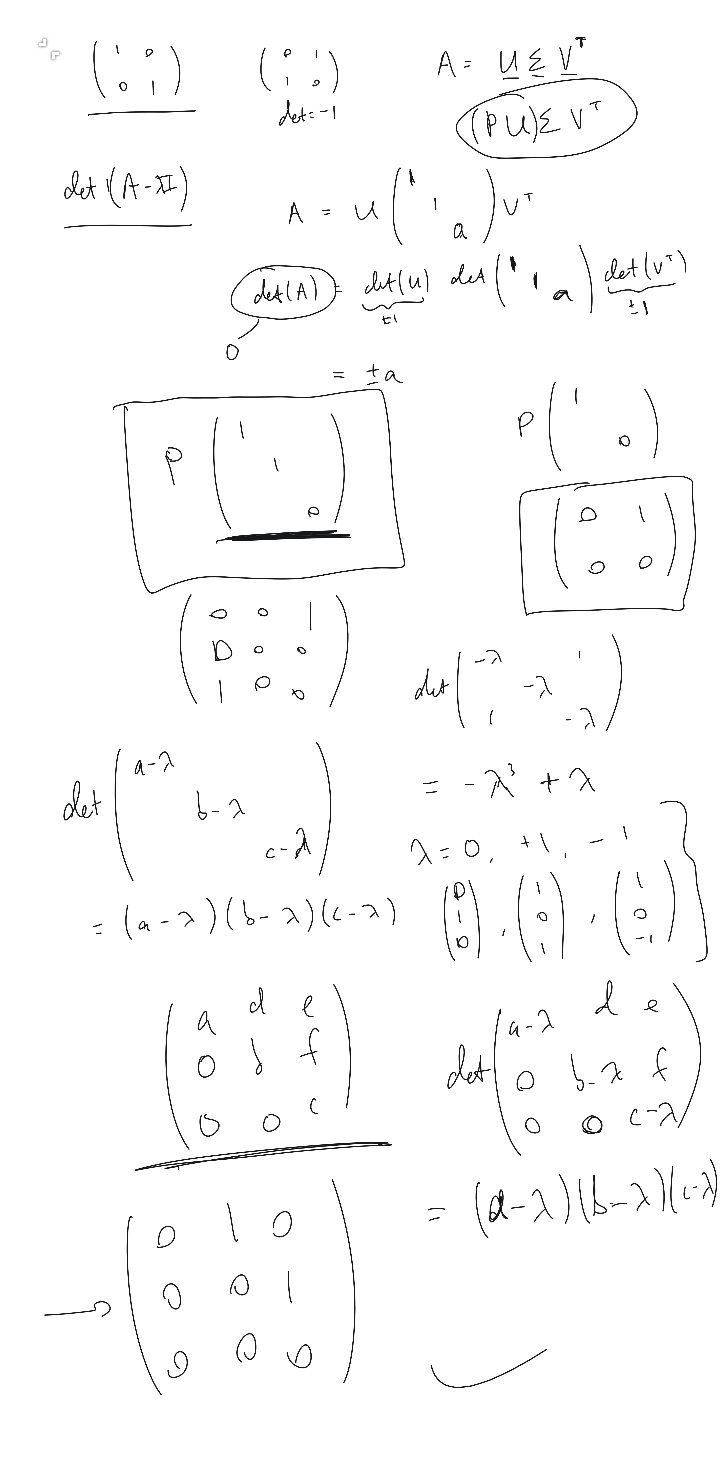 ( 1 0 ) ( 0 1 ) A = U Σ Vᵀ
( 0 1 ) ( 1 0 )
det = -1 (PU)Σ Vᵀ
det (A - λI)
A = U ( 1 1 a ) Vᵀ
det(A) = det(U) det ( 1 1 a ) det(Vᵀ)
±1 ±1
0
= ±a
P ( 1 1 0 ) P ( 1 0 )
( 0 1 )
( 0 0 )
( 0 0 1 )
( 0 0 0 )
( 1 0 0 )
det ( -λ 1 )
( -λ )
( 1 -λ )
det ( a-λ b-λ c-λ ) = -λ³ + λ
λ = 0, +1, -1
= (a-λ)(b-λ)(c-λ)
( 0 ) ( 1 ) ( 1 )
( 1 ) , ( 0 ) , ( 0 )
( 0 ) ( 1 ) ( -1 )
( a d e )
( 0 b f )
( 0 0 c )
det ( a-λ d e )
( 0 b-λ f )
( 0 0 c-λ )
= (a-λ)(b-λ)(c-λ)
→ ( 0 1 0 )
( 0 0 1 )
( 0 0 0 )